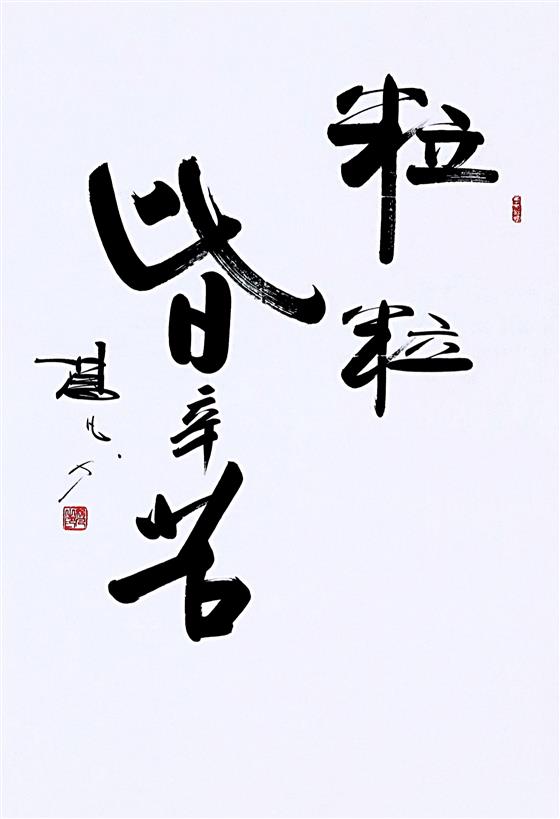 粒粒
皆辛苦